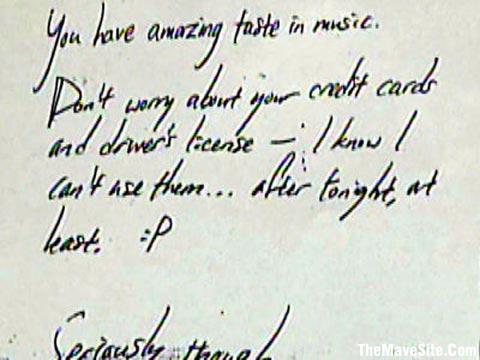 You have amazing taste in music.
Don't worry about your credit cards
and driver's license – I know I
can't use them... after tonight, at
least. :P
Seriously though
TheMaveSite.Com